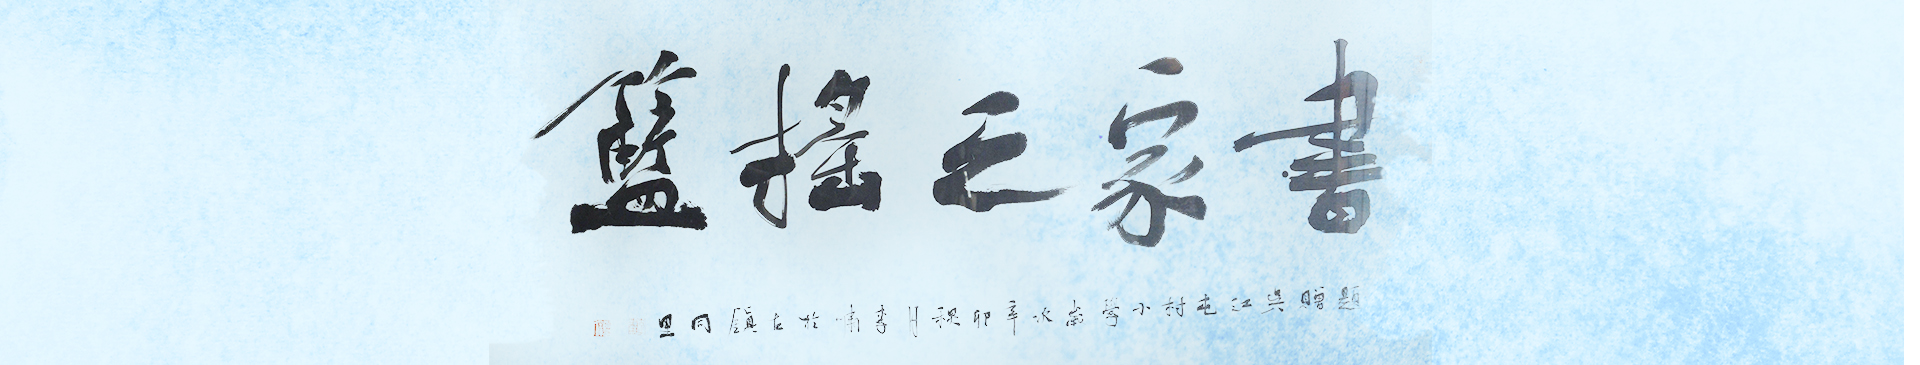 書家之搖籃
題贈吳江屯村小學歲次辛卯秋月李嘯於古鎮同里